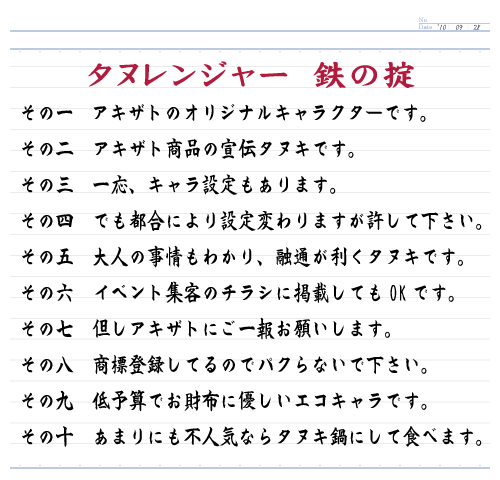 No.
Date '10 09 28
タヌレンジャー 鉄の掟
その一 アキザトのオリジナルキャラクターです。
その二 アキザト商品の宣伝タヌキです。
その三 一応、キャラ設定もあります。
その四 でも都合により設定変わりますが許して下さい。
その五 大人の事情もわかり、融通が利くタヌキです。
その六 イベント集客のチラシに掲載してもOKです。
その七 但しアキザトにご一報お願いします。
その八 商標登録してるのでパクらないで下さい。
その九 低予算でお財布に優しいエコキャラです。
その十 あまりにも不人気ならタヌキ鍋にして食べます。